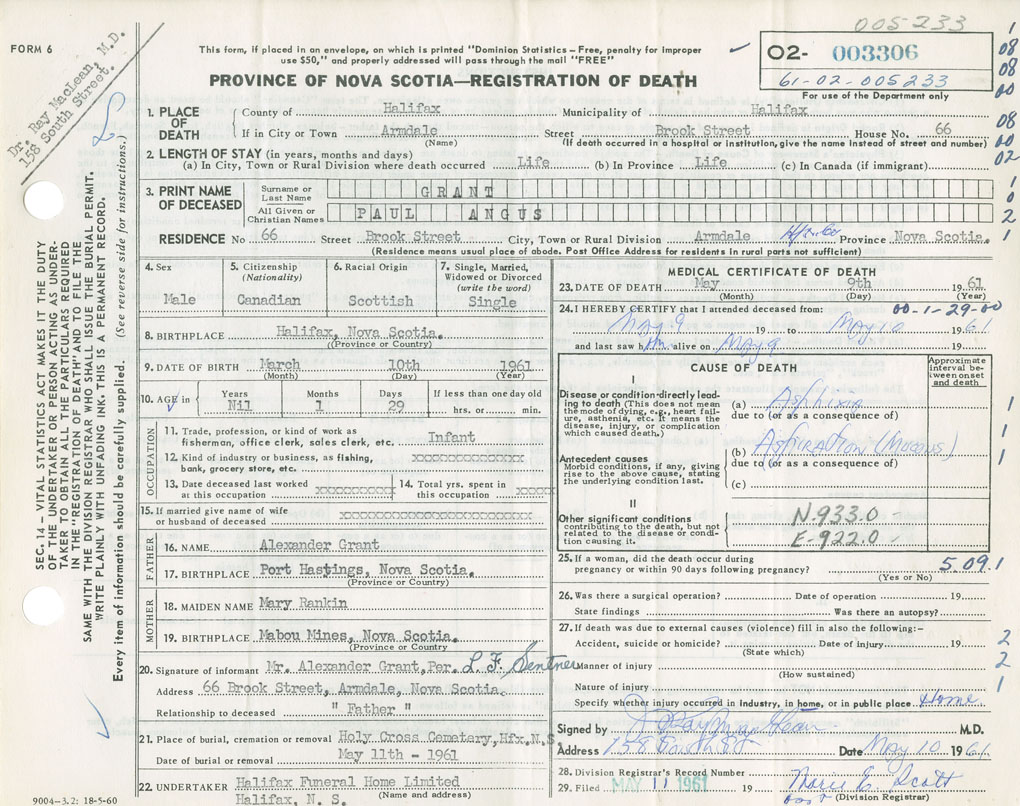 005233
FORM 6
Dr. Ray MacLean, M.D.
158 South Street.
This form, if placed in an envelope, on which is printed "Dominion Statistics – Free, penalty for improper
use $50," and properly addressed will pass through the mail "FREE"
PROVINCE OF NOVA SCOTIA—REGISTRATION OF DEATH
O2- 003306
61-02-005233
For use of the Department only
1. PLACE OF DEATH
County of Halifax Municipality of Halifax
If in City or Town Armdale Street Brook Street House No. 66
(Name) (If death occurred in a hospital or institution, give the name instead of street and number)
2. LENGTH OF STAY (in years, months and days)
(a) In City, Town or Rural Division where death occurred Life (b) In Province Life (c) In Canada (if immigrant)
3. PRINT NAME OF DECEASED
Surname or Last Name GRANT
All Given or Christian Names PAUL ANGUS
RESIDENCE No 66 Street Brook Street City, Town or Rural Division Armdale Hfx. Co Province Nova Scotia.
(Residence means usual place of abode. Post Office Address for residents in rural parts not sufficient)
4. Sex
Male
5. Citizenship
(Nationality)
Canadian
6. Racial Origin
Scottish
7. Single, Married,
Widowed or Divorced
(write the word)
Single
8. BIRTHPLACE Halifax, Nova Scotia.
(Province or Country)
9. DATE OF BIRTH March 10th 1961
(Month) (Day) (Year)
10. AGE in
Years Months Days If less than one day old
Nil 1 29 hrs. or min.
OCCUPATION
11. Trade, profession, or kind of work as
fisherman, office clerk, sales clerk, etc. Infant
12. Kind of industry or business, as fishing,
bank, grocery store, etc. xxxxxxxxxxxxxxxx
13. Date deceased last worked
at this occupation xxxxxxxxxx
14. Total yrs. spent in
this occupation xxxxx
15. If married give name of wife
or husband of deceased xxxxxxxxxxxxxxxxxxxxxxx
FATHER
16. NAME Alexander Grant
17. BIRTHPLACE Port Hastings, Nova Scotia.
(Province or Country)
MOTHER
18. MAIDEN NAME Mary Rankin
19. BIRTHPLACE Mabou Mines, Nova Scotia.
(Province or Country
20. Signature of informant Mr. Alexander Grant, Per. L. F. Sentner
Address 66 Brook Street, Armdale, Nova Scotia.
Relationship to deceased " Father "
21. Place of burial, cremation or removal Holy Cross Cemetery, Hfx, N.S
Date of burial or removal May 11th - 1961
22. UNDERTAKER Halifax Funeral Home Limited
(Name and address)
Halifax, N. S.
9004-3.2: 18-5-60
MEDICAL CERTIFICATE OF DEATH
23. DATE OF DEATH May 9th 19 61
(Month) (Day) (Year)
24. I HEREBY CERTIFY that I attended deceased from: 00-1-29-00
May 9 19 to May 10 1961
and last saw him alive on May 9 19
CAUSE OF DEATH
Approximate interval between onset and death
I
Disease or condition directly leading to death (This does not mean the mode of dying, e.g., heart failure, asthenia, etc. It means the disease, injury, or complication which caused death.)
(a) Asphixia
due to (or as a consequence of)
Antecedent causes
Morbid conditions, if any, giving rise to the above cause, stating the underlying condition last.
(b) Aspiration (Mucous)
due to (or as a consequence of)
(c)
II
Other significant conditions
contributing to the death, but not related to the disease or condition causing it.
N.933.0 -
E-922.0 -
25. If a woman, did the death occur during
pregnancy or within 90 days following pregnancy? 5.09.1
(Yes or No)
26. Was there a surgical operation? Date of operation 19
State findings Was there an autopsy?
27. If death was due to external causes (violence) fill in also the following:-
Accident, suicide or homicide? Date of injury 19
(State which)
Manner of injury
(How sustained)
Nature of injury
Specify whether injury occurred in industry, in home, or in public place Home
Signed by J. Ray MacLean M.D.
Address 158 South St Date May 10 1961
28. Division Registrar's Record Number
29. Filed MAY 11 1961 19 Marie E. Scott
(Division Registrar)
SEC. 14 – VITAL STATISTICS ACT MAKES IT THE DUTY
OF THE UNDERTAKER OR PERSON ACTING AS UNDER-
TAKER TO OBTAIN ALL THE PARTICULARS REQUIRED
IN THE "REGISTRATION OF DEATH" AND TO FILE THE
SAME WITH THE DIVISION REGISTRAR WHO SHALL ISSUE THE BURIAL PERMIT.
WRITE PLAINLY WITH UNFADING INK. THIS IS A PERMANENT RECORD.
Every item of information should be carefully supplied. (See reverse side for instructions.)
1
08
08
00
08
00
02
1
0
2
1
1
1
1
2
2
1